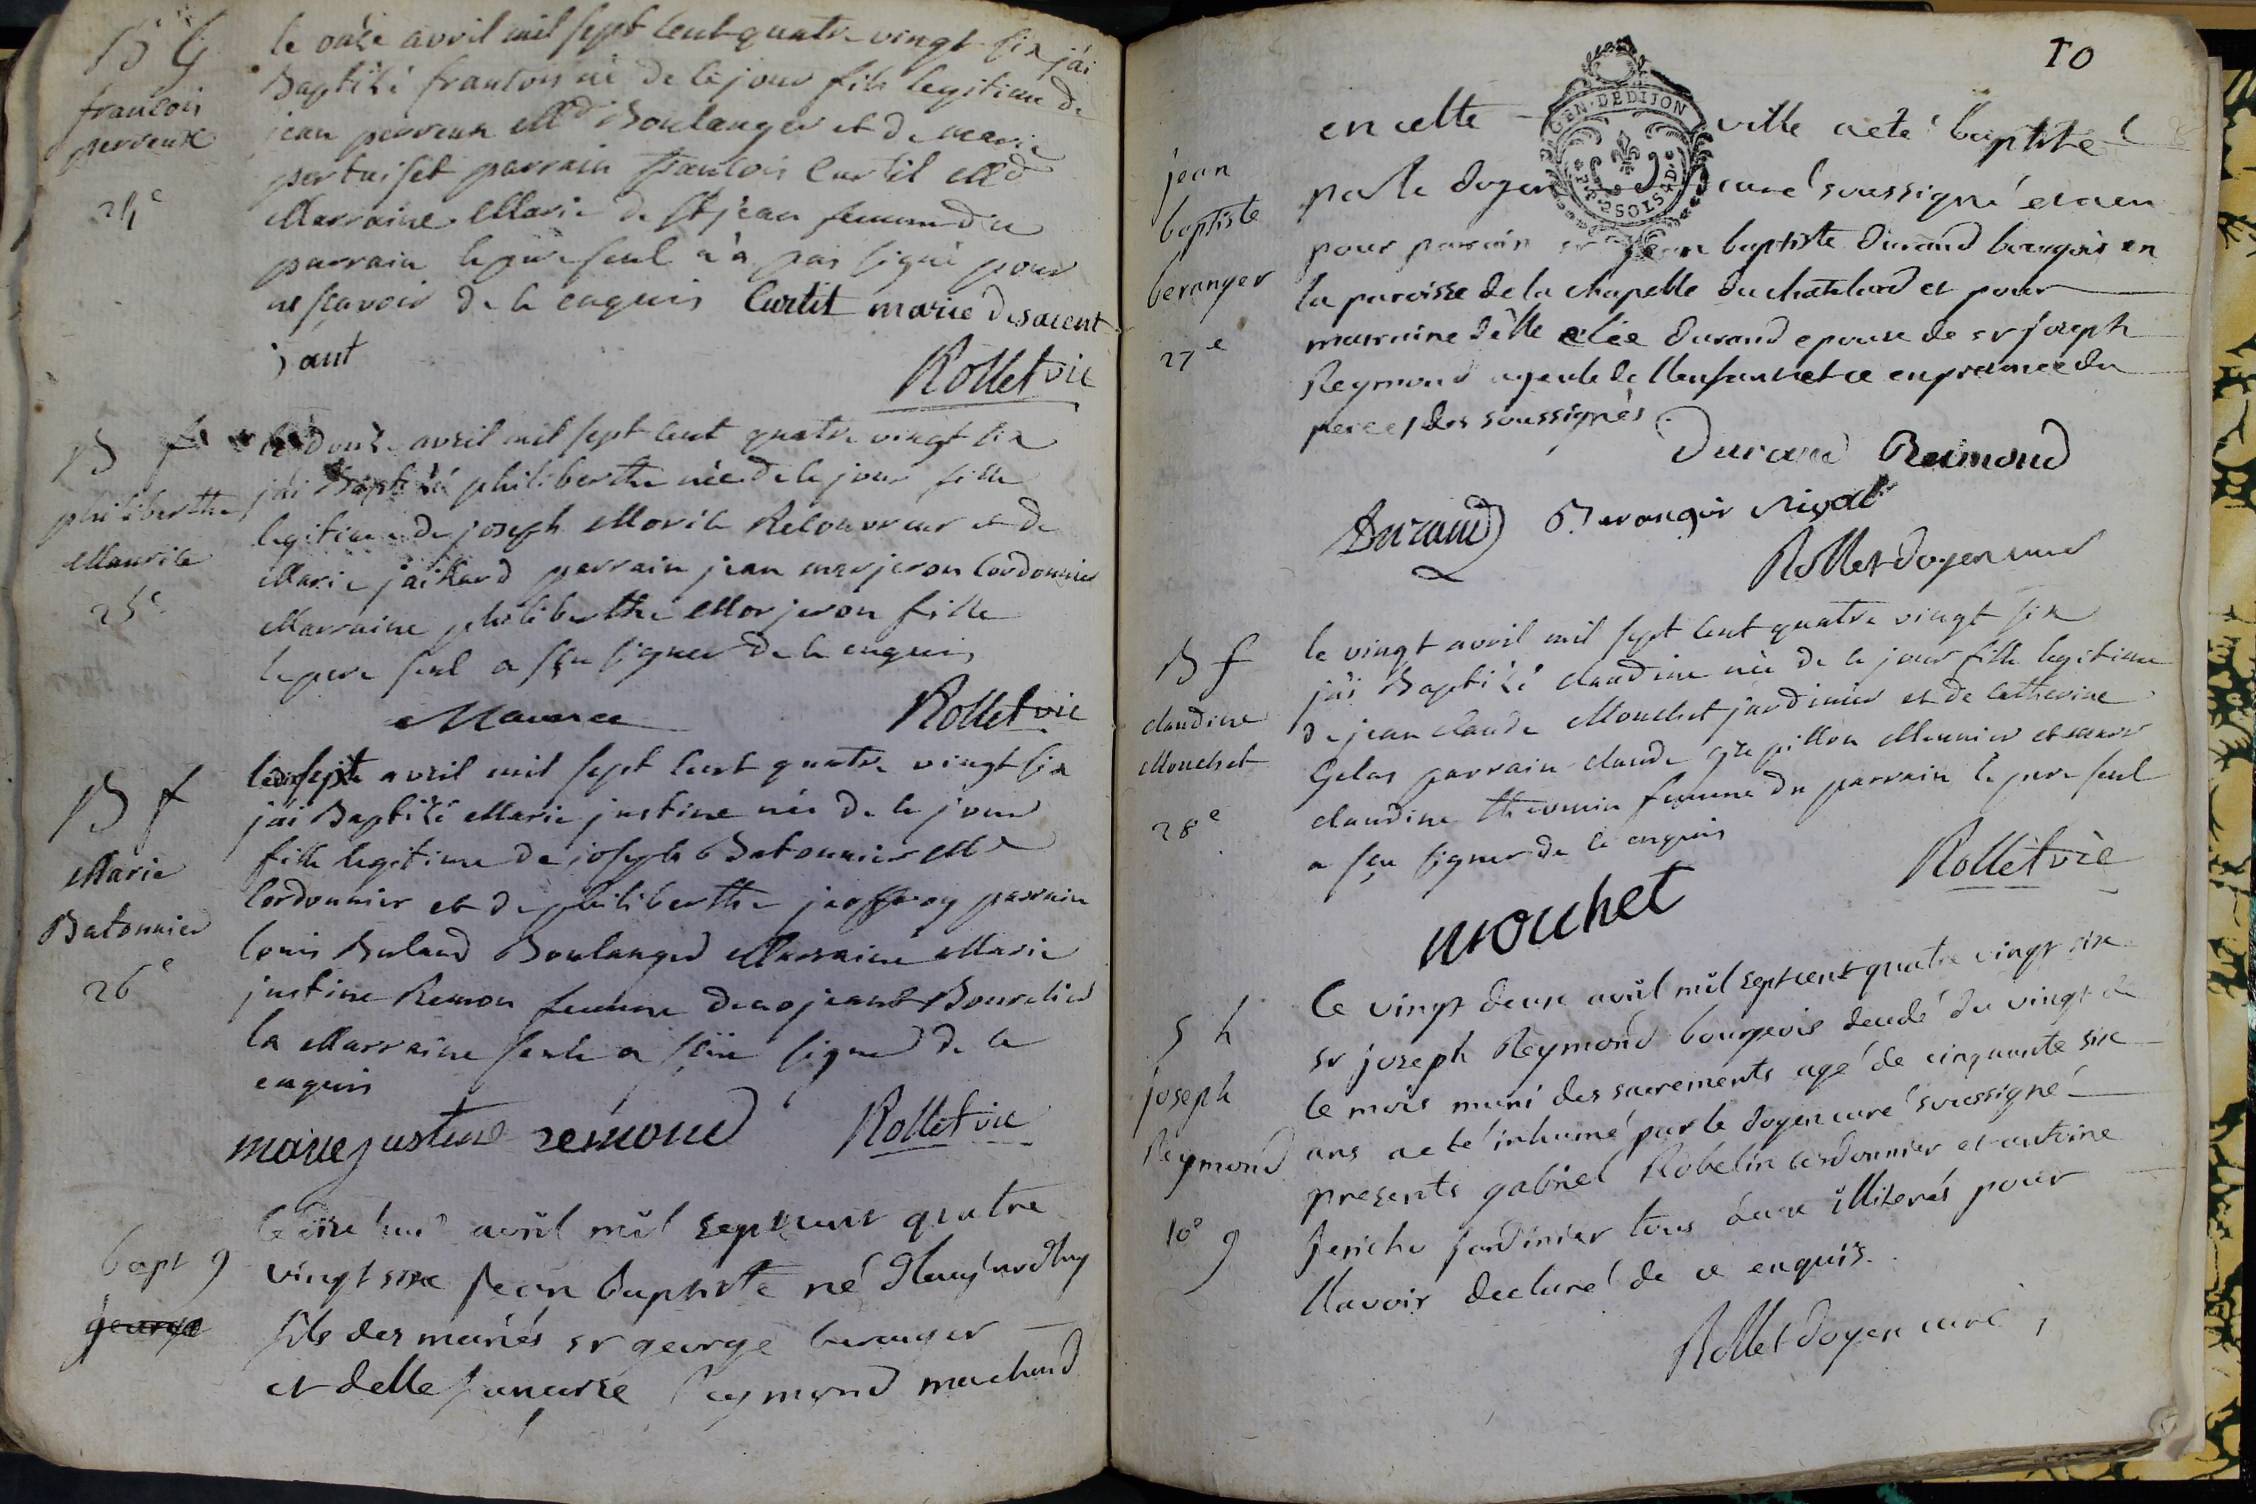 B G
francois
perreux
24e
le onze avril mil sept cent quatre vingt six j'ai
Baptizé francois né de ce jour fils legitime de
jean perreux Md Boulanger et de marie
pertuiset parrain francois Curtil Md
Marraine Marie de St jean femme du
parrain le pere seul n'a pas signé pour
ne sçavoir de ce enquis Curtil marie desaent
jant
Rollet vic
B f
philiberthe
Maurice
25e
le douze avril mil sept cent quatre vingt six
j'ai Baptizé philiberthe née de ce jour fille
legitime de joseph Morice Recouvreur et de
Marie jaillard parrain jean marjeron Cordonnier
Marraine philiberthe Morjeron fille
le pere seul a sçu signer de ce enquis
Maurice Rollet vic
B f
Marie
Batonnier
26e
le dix sept avril mil sept cent quatre vingt six
j'ai Baptizé Marie justine née de ce jour
fille legitime de joseph Batonnier Md
Cordonnier et de philiberthe jeoffroy parrain
louis Buland Boulanger Marraine Marie
justine Remon femme de Bourelier
la Marraine seule a sçue signer de ce
enquis
marie justine rémond Rollet vic
bapt g
george
le dix huit avril mil sept cent quatre
vingt six jean baptiste né d'aujourdhuy
fils des mariés sr george beranger
et delle Reymond marchand
10
jean
baptiste
beranger
27e
GEN·DEDIJON
en cette ville a eté baptisé
par le doyen curé soussigné et a eu
pour parain sr jean baptiste durand bourgois en
la paroisse de la chapelle du chatelard et pour
marraine delle durand epouse de sr joseph
Reymond ayeule de l'enfant et ce en presence du
pere et des soussignés
Durand Reimond
Durand Beranger
Rollet doyen curé
B f
claudine
Mouchet
28e
le vingt avril mil sept cent quatre vingt six
j'ai Baptizé claudine née de ce jour fille legitime
de jean claude Mouchet jardinier et de Catherine
Gelas parrain claude pillon Meunier et marr
claudine femme du parrain le pere seul
a sçu signer de ce enquis
Rollet vic
mouchet
S h
joseph
Reymond
10e g
Le vingt deux avril mil sept cent quatre vingt six
sr joseph Reymond bourgeois decedé du vingt de
ce mois muni des sacrements agé de cinquante six
ans a eté inhumé par le doyen curé soussigné
presents gabriel Robelin cordonnier et antoine
Jericho jardinier tous deux illiterés pour
l'avoir declaré de ce enquis.
Rollet doyen curé